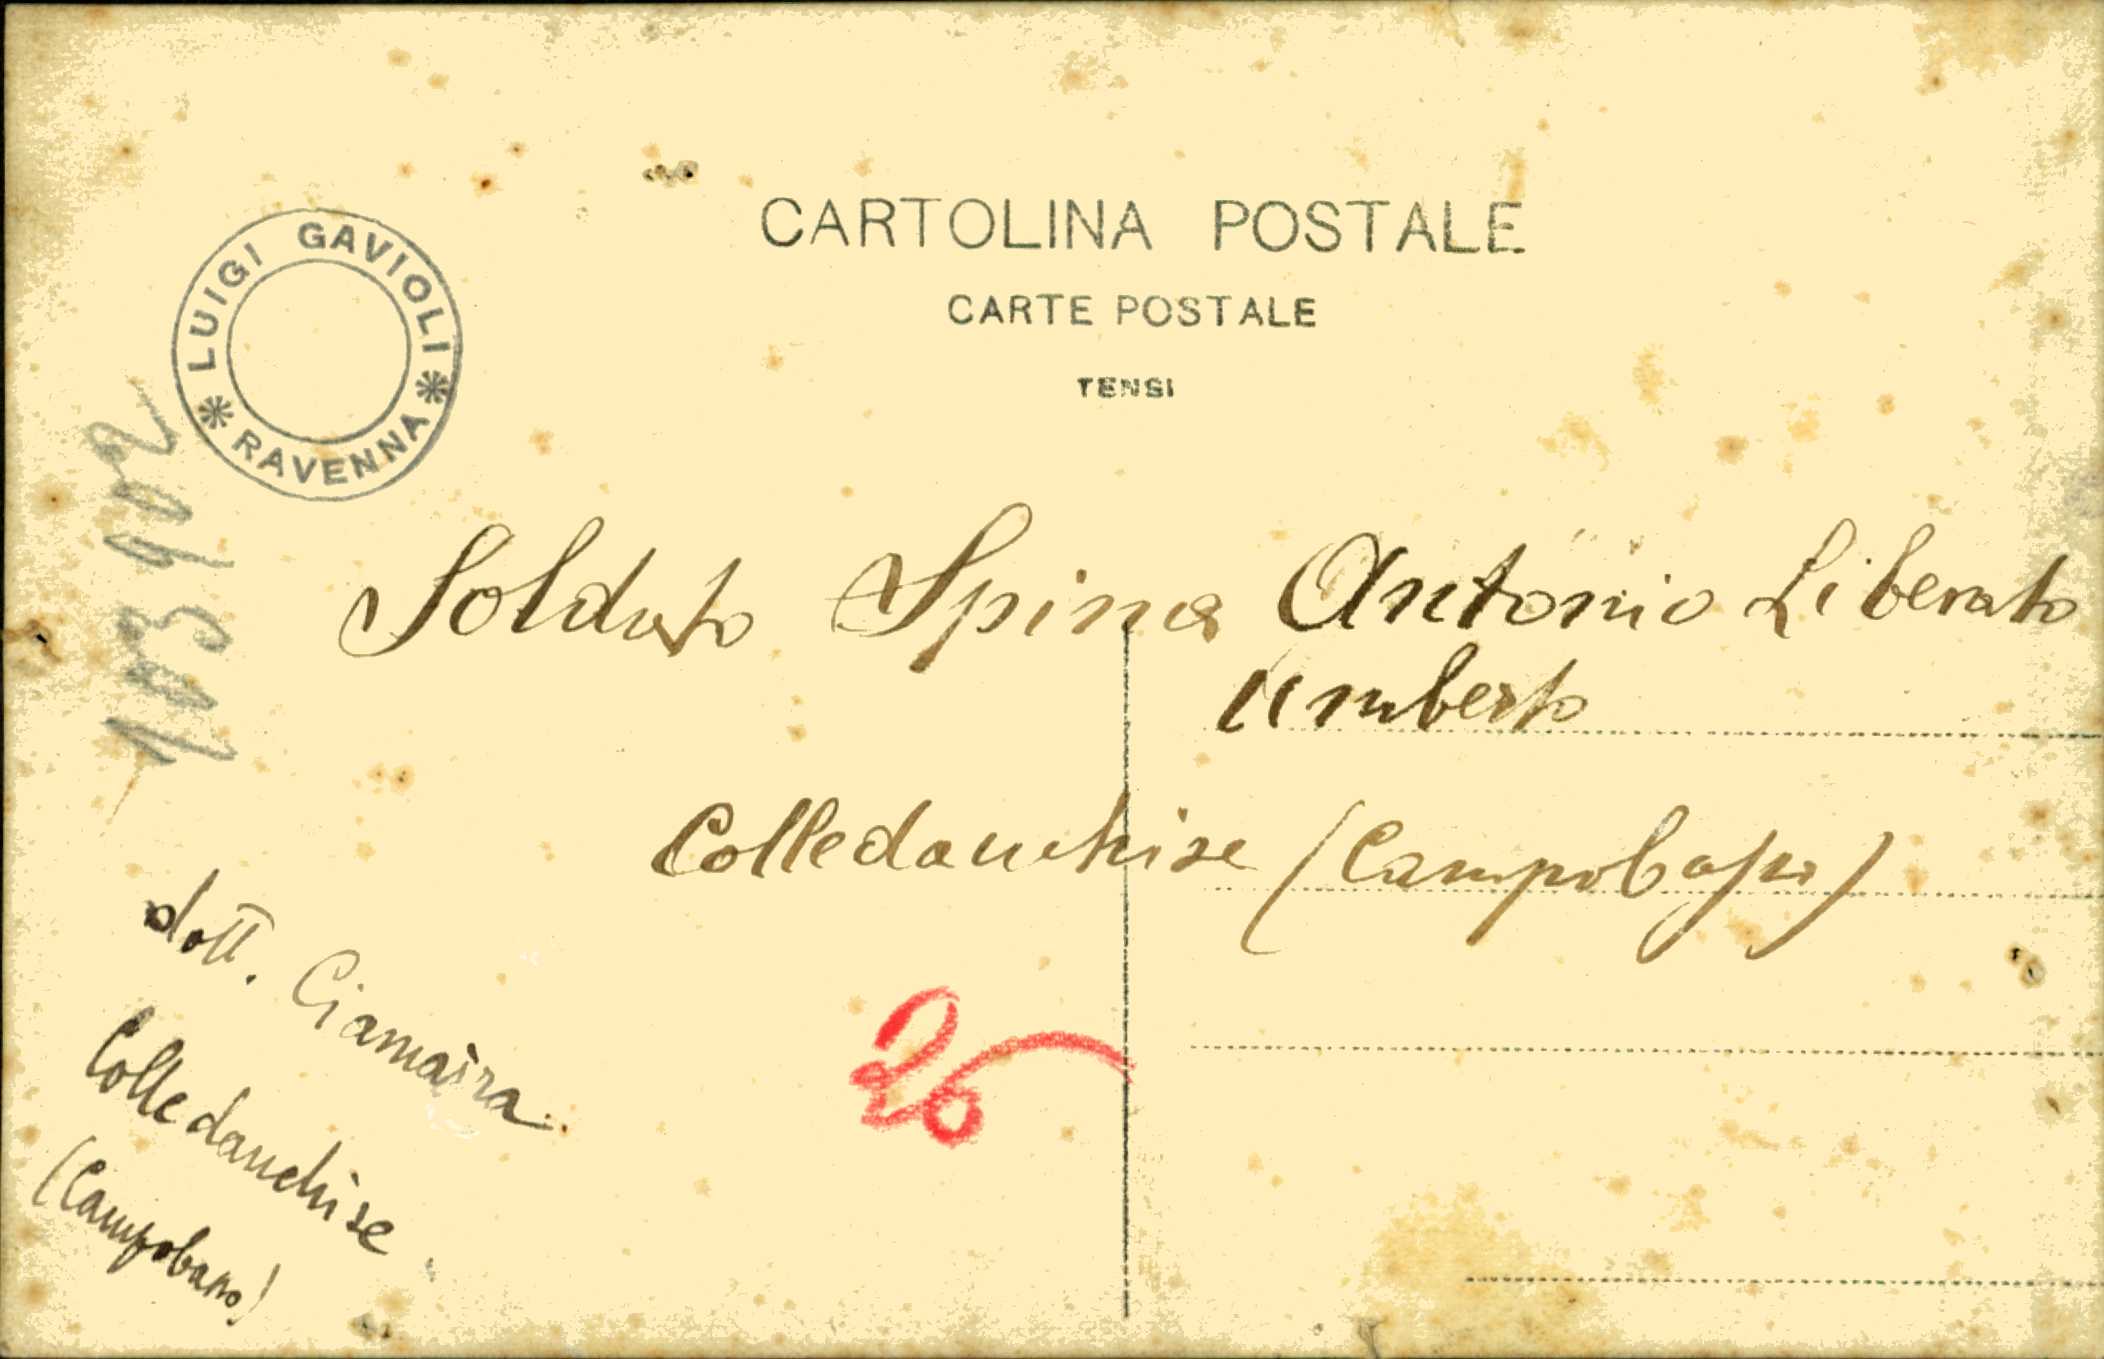 CARTOLINA POSTALE
CARTE POSTALE
TENSI
LUIGI GAVIOLI
RAVENNA
Soldato Spina Antonio Liberato
Umberto
Colledanchise (Campobasso)
dott. Ciamarra
Colledanchise
(Campobasso)
20